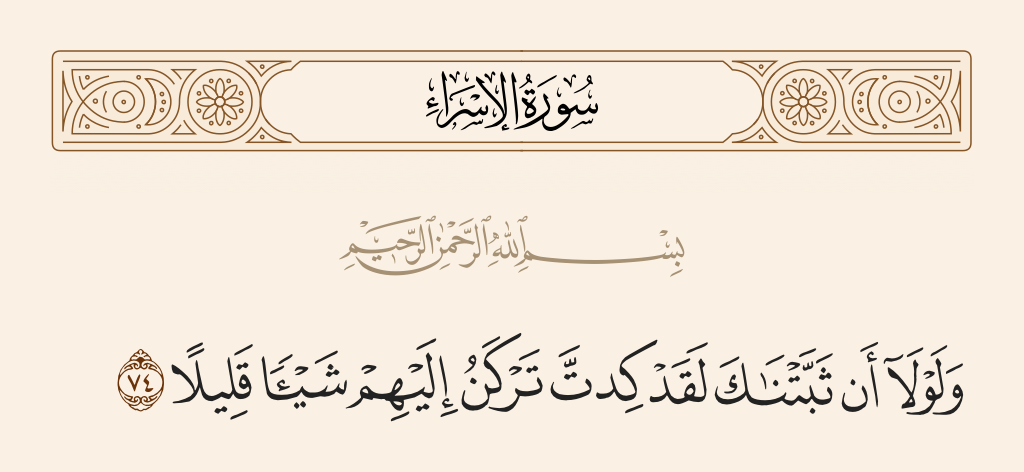 سُورَةُ الإِسْرَاءِ
بِسْمِ ٱللَّهِ ٱلرَّحْمَٰنِ ٱلرَّحِيمِ
وَلَوْلَآ أَن ثَبَّتْنَـٰكَ لَقَدْ كِدتَّ تَرْكَنُ إِلَيْهِمْ شَيْـًٔا قَلِيلًا ٧٤